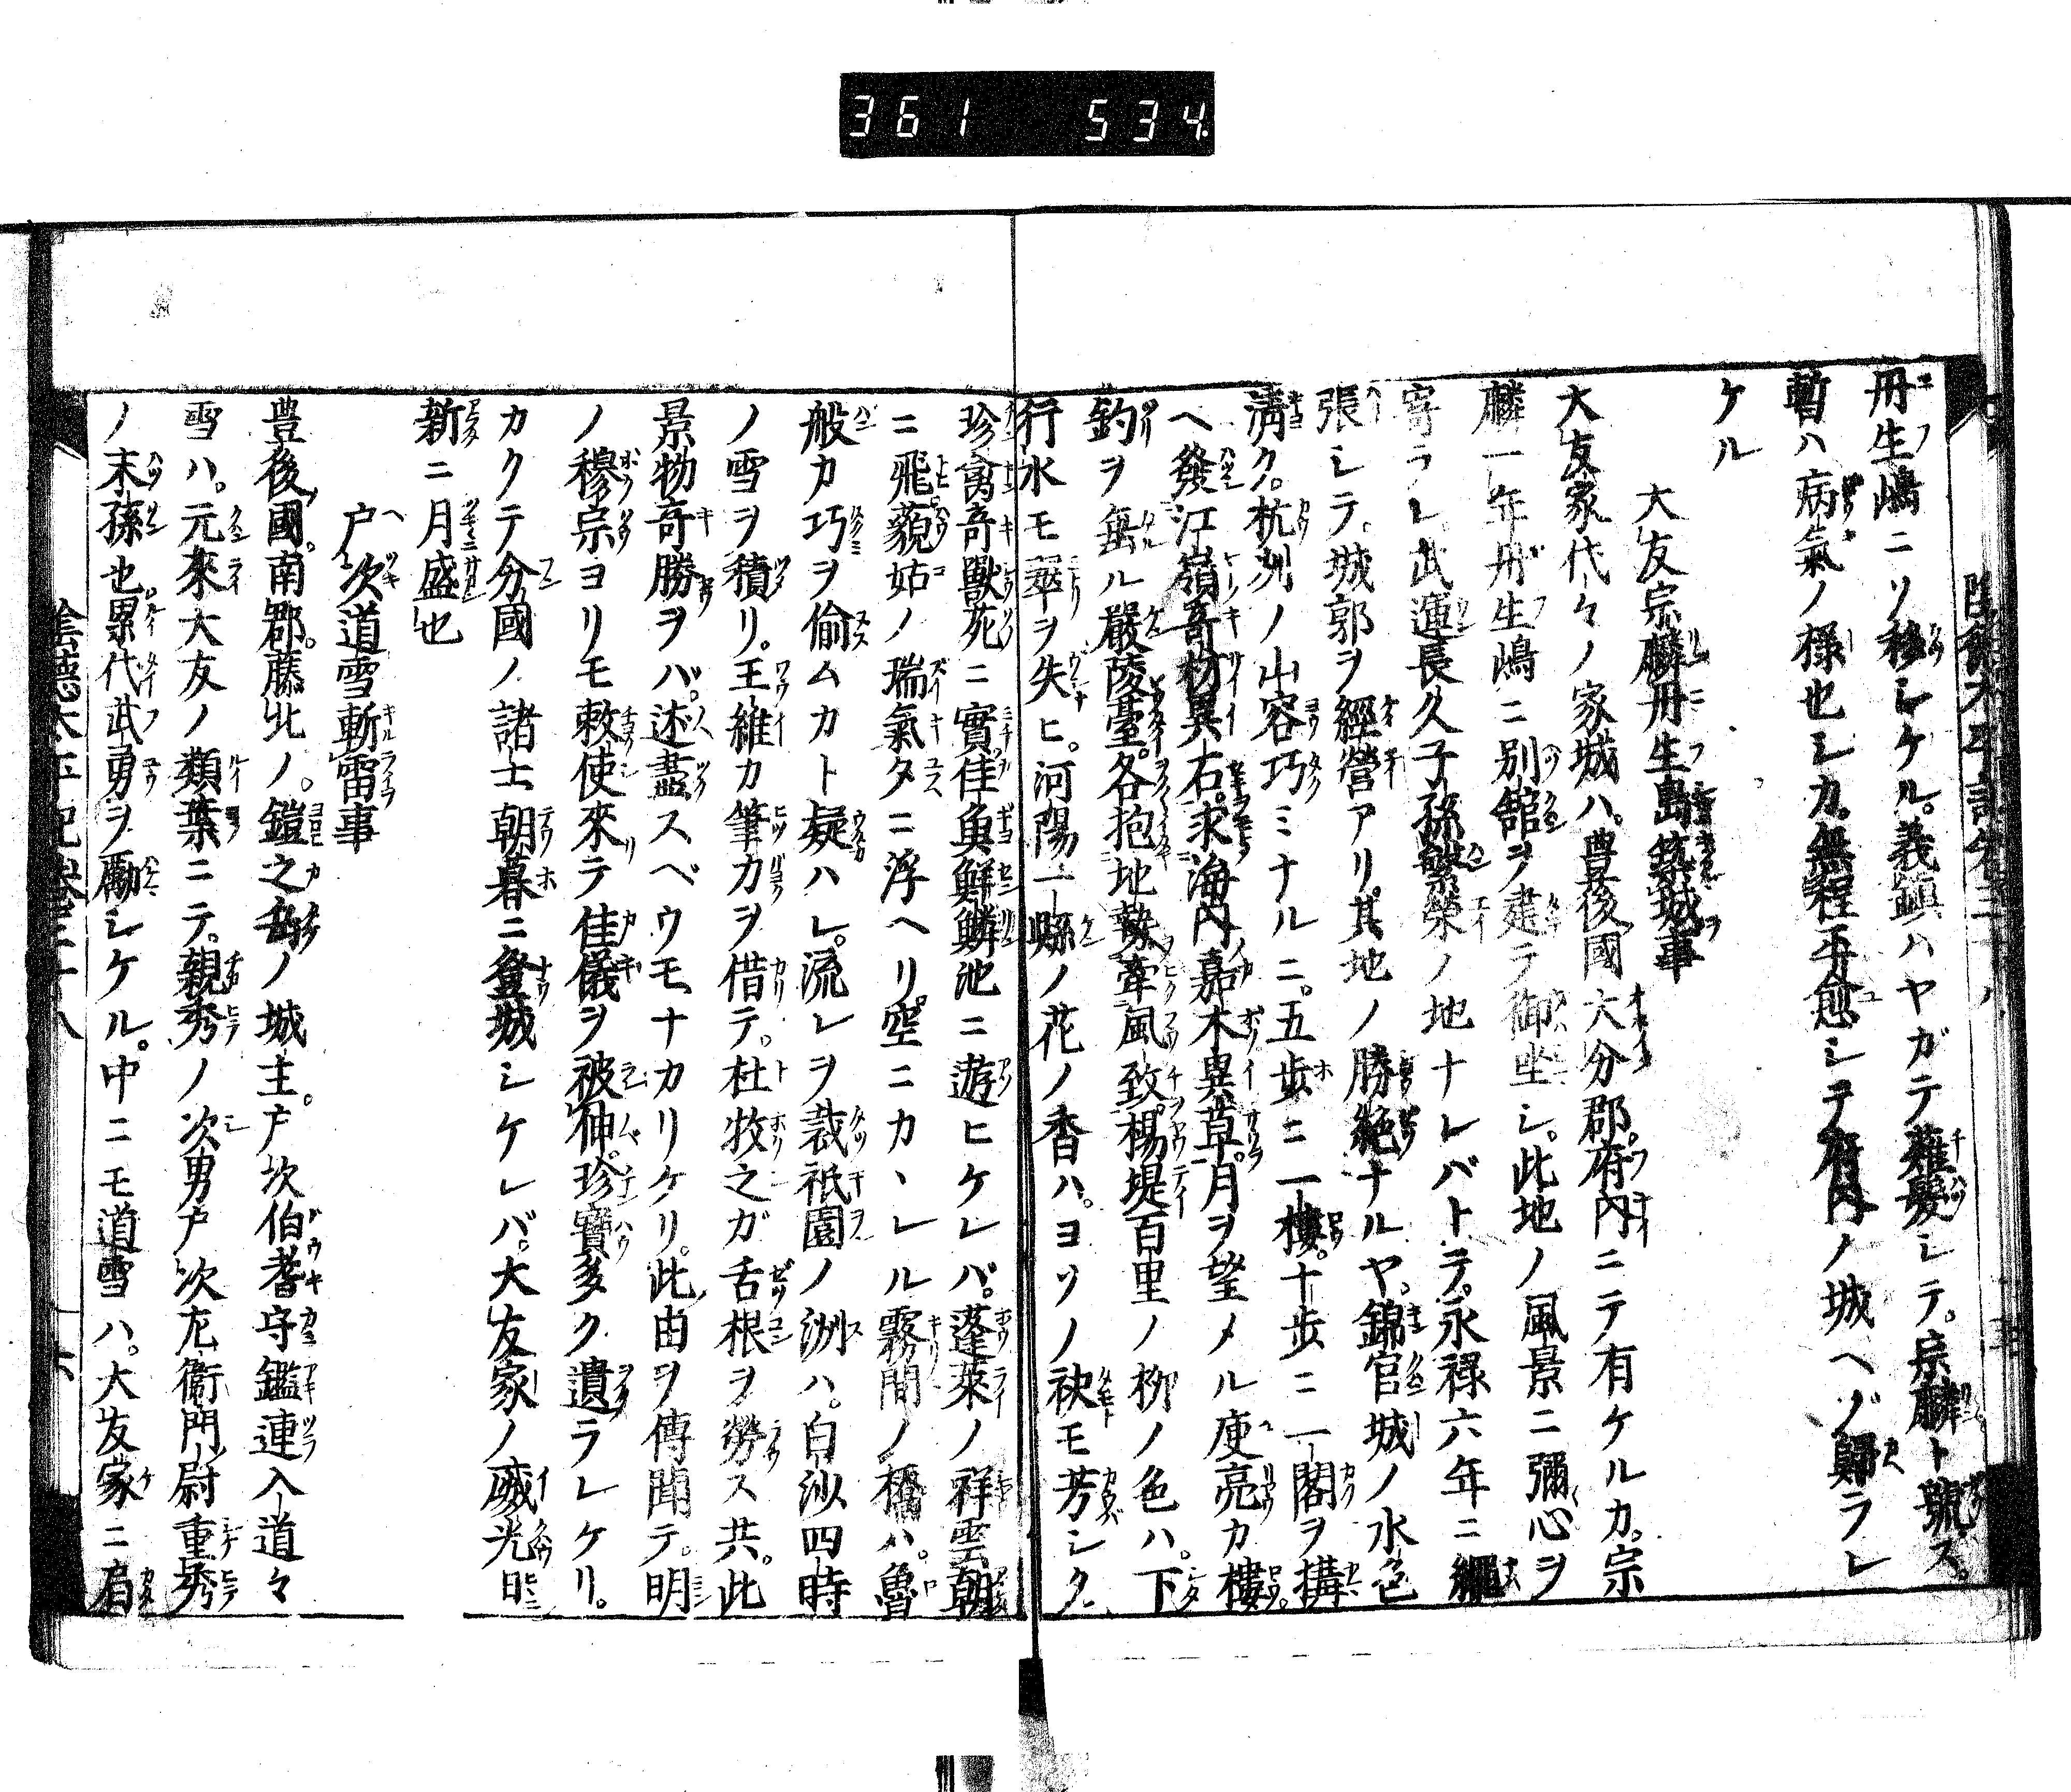 361 534
丹生嶋ニソ移シケル。義鎮ハヤガテ薙髪シテ。宗麟ト號ス。
暫ハ病氣ノ様也シカ。無程平愈シテ府内ノ城ヘゾ歸ラレ
ケル
大友宗麟丹生島築城事
大友家代々ノ家城ハ。豊後國大分郡。府内ニテ有ケルカ。宗
麟一年丹生嶋ニ別舘ヲ建テ御坐シ。此地ノ風景ニ彌心ヲ
寄ラレ武運長久子孫繁榮ノ地ナレバトテ。永禄六年ニ縄
張シテ。城郭ヲ經營アリ。其地ノ勝絶ナルヤ。錦官城ノ水色
清ク。杭洲ノ山容巧ミナルニ。五歩ニ一樓。十歩ニ一閣ヲ構
ヘ發江嶺奇材異石。求海内嘉木異草。月ヲ望メル庾亮カ樓。
釣ヲ垂ル嚴陵臺。各抱地勢牽風致。楊堤百里ノ柳ノ色ハ。下
行水モ翠ヲ失ヒ。河陽一縣ノ花ノ香ハ。ヨソノ袂モ芳シク
珍禽奇獸苑ニ實佳魚鮮鱗池ニ遊ヒケレバ。蓬萊ノ祥雲朝
ニ飛藐姑ノ瑞氣タニ浮ヘリ。空ニカヽレル霧間ノ橋ハ。魯
般カ巧ヲ偷ムカト疑ハレ。流レヲ裁祇園ノ洲ハ。白沙四時
ノ雪ヲ積リ。王維カ筆力ヲ借テ。杜牧之ガ舌根ヲ勞ス共。此
景物奇勝ヲバ。述盡スベウモナカリケリ。此由ヲ傳聞テ。明
ノ穆宗ヨリモ敕使來テ佳儀ヲ被伸。珍寶多ク遺ラレケリ。
カクテ分國ノ諸士朝暮ニ登城シケレバ。大友家ノ威光日
新ニ月盛也
戸次道雪斬雷事
豊後國。南郡。藤北ノ。鎧之岳ノ城主。戸次伯耆守鑑連入道々
雪ハ。元來大友ノ類葉ニテ。親秀ノ次男戸次左衞門尉重秀
ノ末孫也。累代武勇ヲ勵シケル。中ニモ道雪ハ。大友家ニ肩
陰徳太平記巻三十八
六